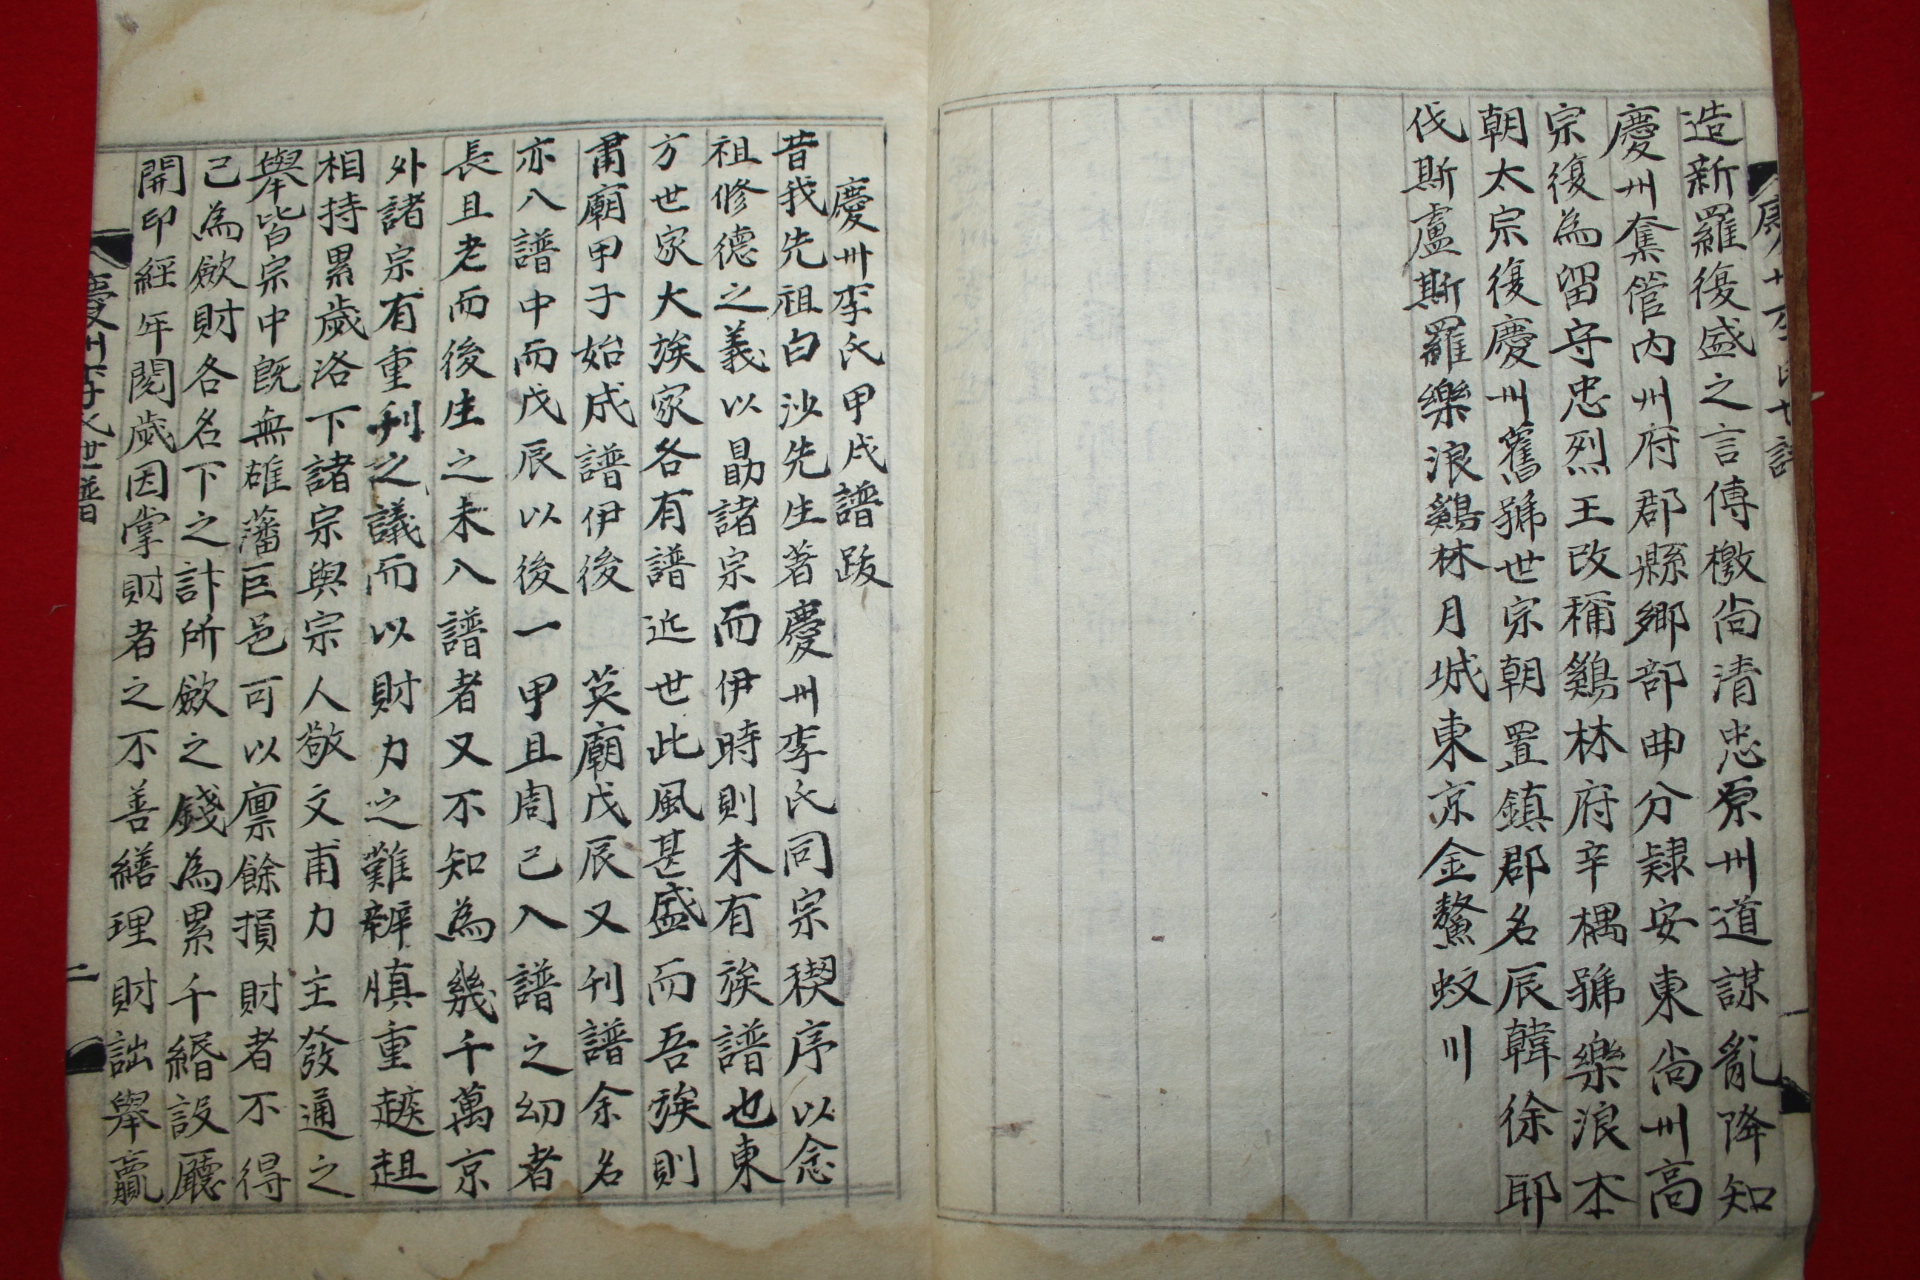 造新羅復盛之言傳檄尙清忠原州道謀亂降知
慶州奪管內州府郡縣鄉部曲分隷安東尙州高
宗復為留守忠烈王改稱鷄林府辛楀號樂浪本
朝太宗復慶州舊號世宗朝置鎮郡名辰韓徐耶
伐斯盧斯羅樂浪鷄林月城東京金鰲蚊川
慶州李氏甲戌譜跋
昔我先祖白沙先生著慶州李氏同宗稧序以念
祖修德之義以勗諸宗而伊時則未有族譜也東
方世家大族家各有譜近世此風甚盛而吾族則
肅廟甲子始成譜伊後 英廟戊辰又刊譜余名
亦入譜中而戊辰以後一甲且周已入譜之幼者
長且老而後生之未入譜者又不知為幾千萬京
外諸宗有重刋之議而以財力之難辦愼重趑趄
相持累歲洛下諸宗與宗人敬文甫力主發通之
舉皆宗中旣無雄藩巨邑可以廪餘損財者不得
已為斂財各名下之計所斂之錢為累千緡設廳
開印經年閱歲因掌財者之不善繕理財詘舉贏
慶州李氏世譜
二